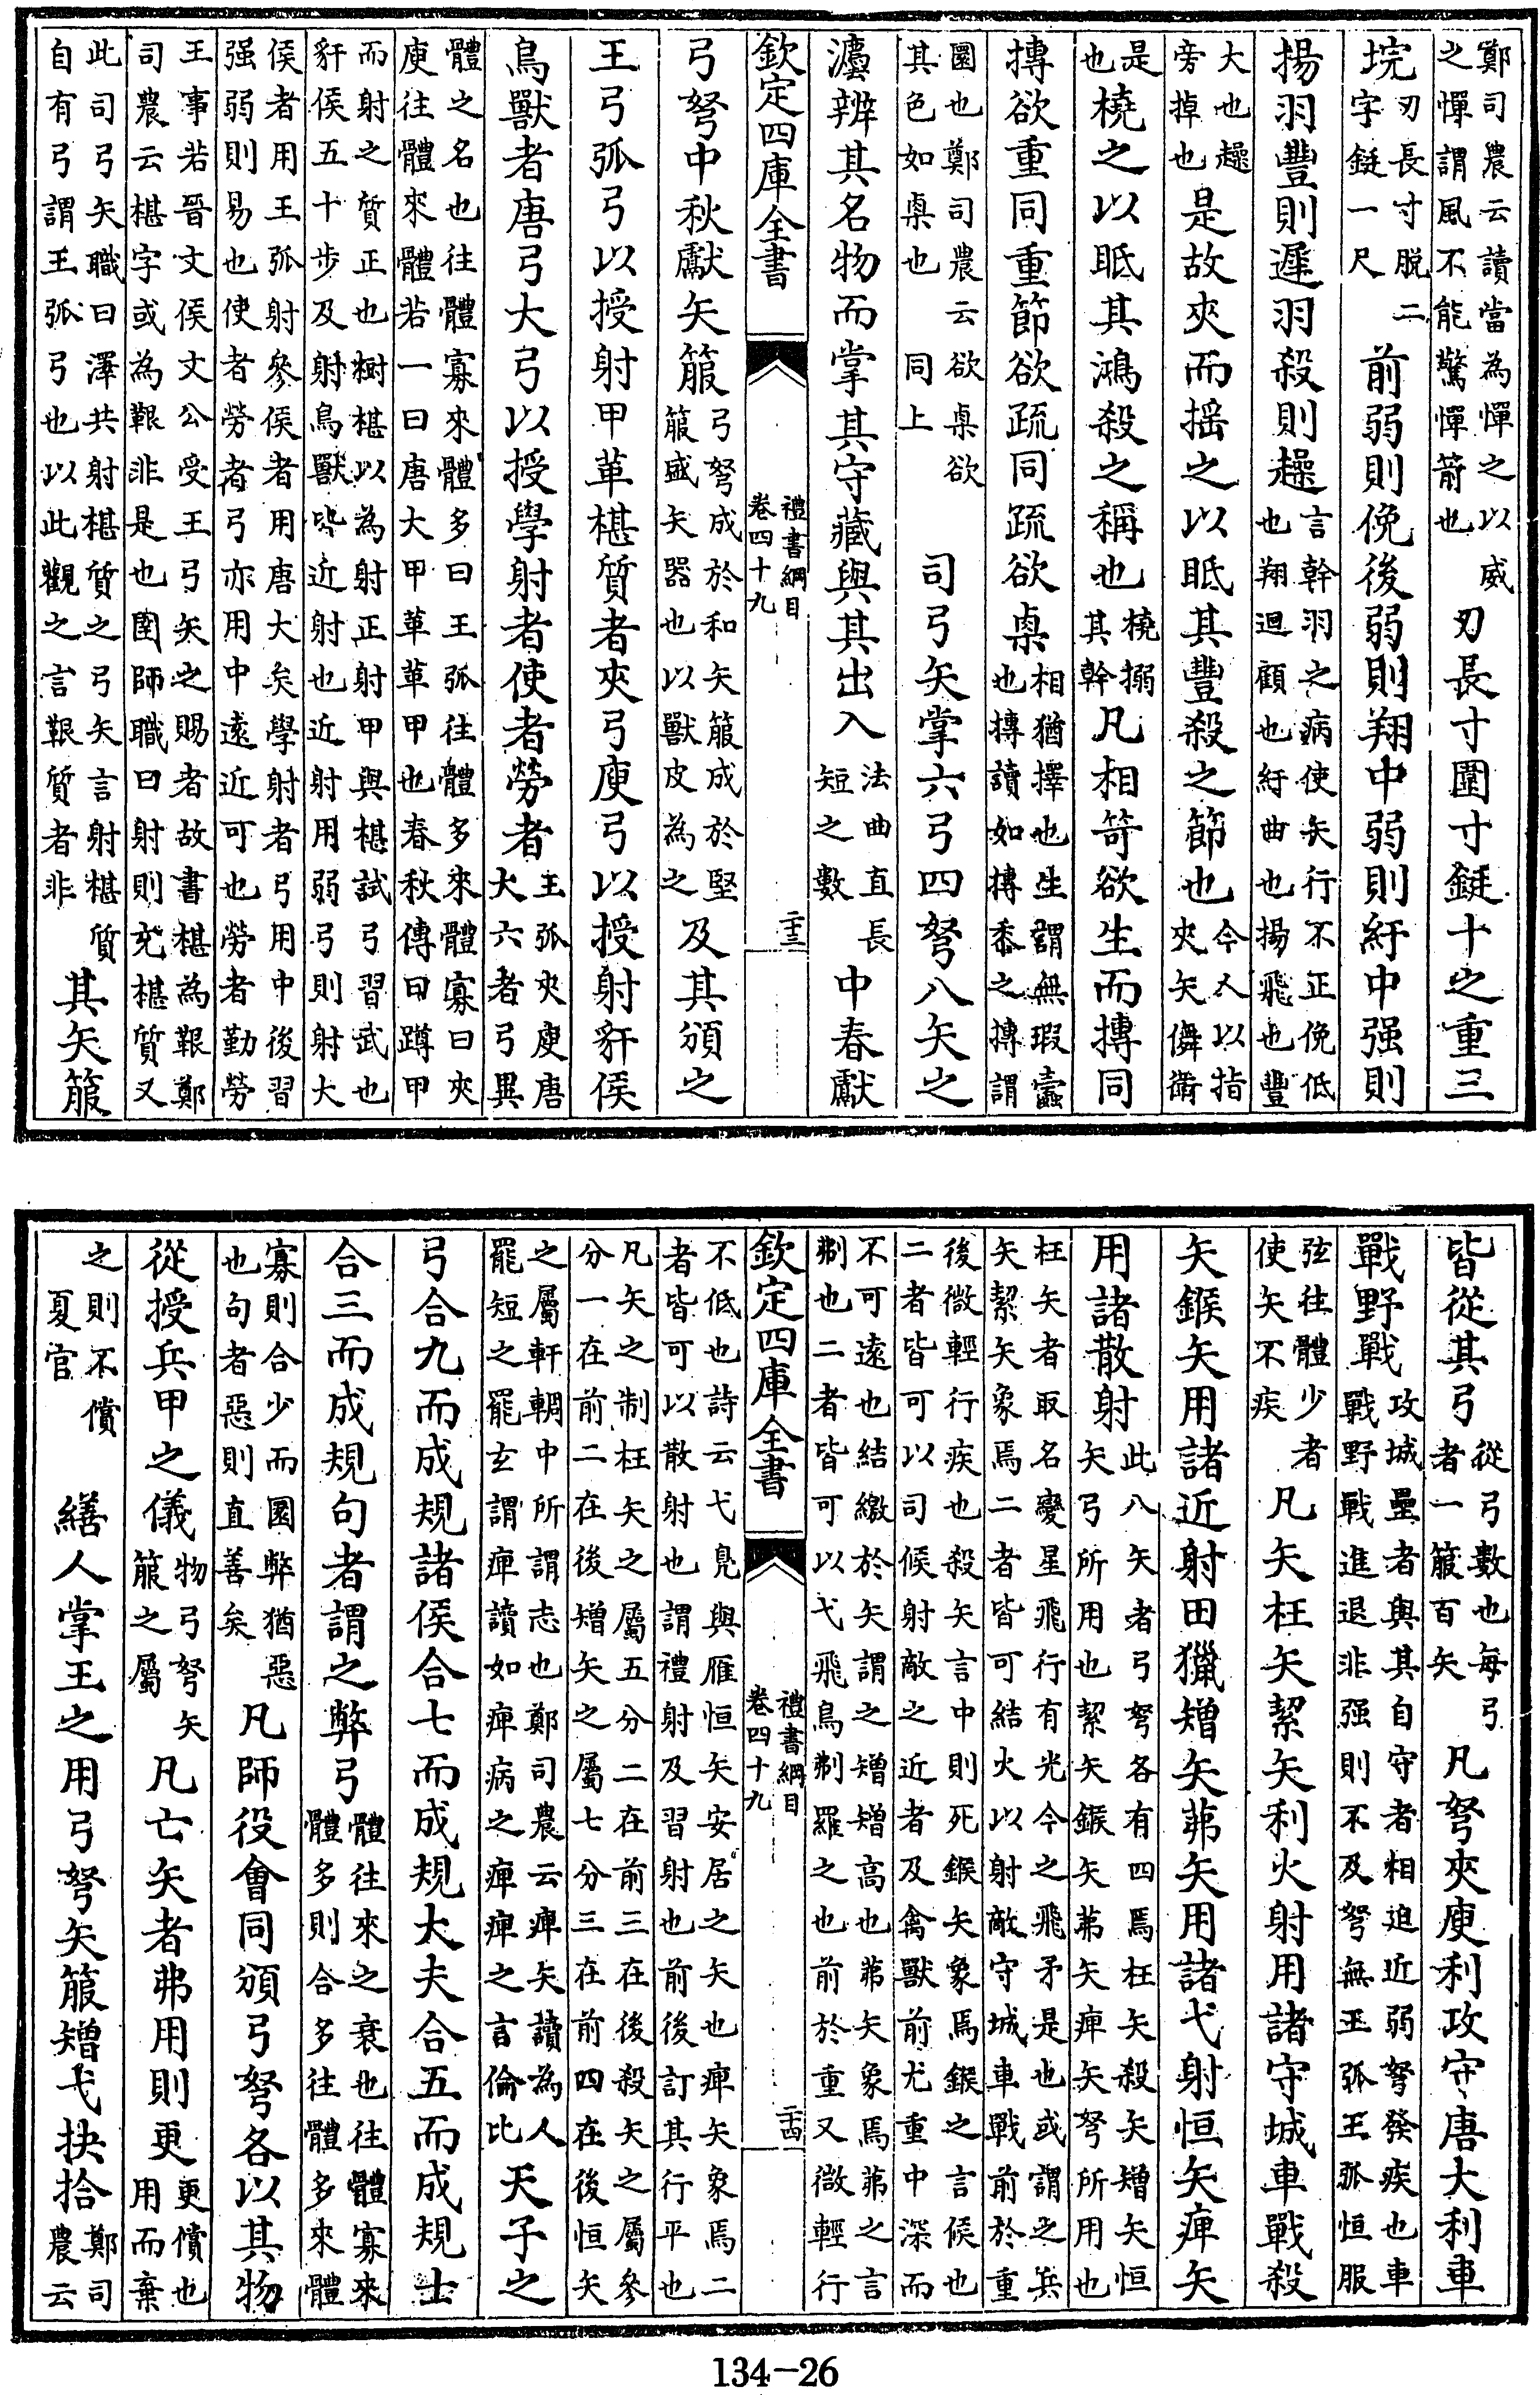 鄭司農云讀當為憚之以威
之憚謂風不能驚憚箭也
刃長寸圍寸鋌十之重三
垸
刃長寸脱二
字鋌一尺
前弱則俛後弱則翔中弱則紆中强則
揚羽豐則遲羽殺則趮
言幹羽之病使矢行不正俛低
也翔迴顧也紆曲也揚飛也豐
大也趮
旁掉也
是故夾而揺之以眡其豐殺之節也
今人以指
夾矢儛衛
是也
橈之以眡其鴻殺之稱也
橈搦
其幹
凡相笴欲生而摶同
摶欲重同重節欲疏同疏欲㮚
相猶擇也生謂無瑕蠹
也摶讀如摶黍之摶謂
圜也鄭司農云欲㮚欲
其色如㮚也同上
司弓矢掌六弓四弩八矢之
灋辨其名物而掌其守藏與其出入
法曲直長
短之數
中春獻
欽定四庫全書
禮書綱目
卷四十九
二十三
弓弩中秋獻矢箙
弓弩成於和矢箙成於堅
箙盛矢器也以獸皮為之
及其頒之
王弓弧弓以授射甲革椹質者夾弓庾弓以授射豻侯
鳥獸者唐弓大弓以授學射者使者勞者
王弧夾庾唐
大六者弓異
體之名也往體寡來體多曰王弧往體多來體寡曰夾
庾往體來體若一曰唐大甲革革甲也春秋傳曰蹲甲
而射之質正也樹椹以為射正射甲與椹試弓習武也
豻侯五十步及射鳥獸皆近射也近射用弱弓則射大
侯者用王弧射參侯者用唐大矣學射者弓用中後習
强弱則易也使者勞者弓亦用中遠近可也勞者勤勞
王事若晉文侯文公受王弓矢之賜者故書椹為鞎鄭
司農云椹字或為鞎非是也圉師職曰射則充椹質又
此司弓矢職曰澤共射椹質之弓矢言射椹質
自有弓謂王弧弓也以此觀之言鞎質者非
其矢箙
皆從其弓
從弓數也每弓
者一箙百矢
凡弩夾庾利攻守唐大利車
戰野戰
攻城壘者與其自守者相迫近弱弩發疾也車
戰野戰進退非强則不及弩無王弧王弧恒服
弦往體少者
使矢不疾
凡矢枉矢絜矢利火射用諸守城車戰殺
矢鍭矢用諸近射田獵矰矢茀矢用諸弋射恒矢庳矢
用諸散射
此八矢者弓弩各有四焉枉矢殺矢矰矢恒
矢弓所用也絜矢鍭矢茀矢庳矢弩所用也
枉矢者取名變星飛行有光今之飛矛是也或謂之兵
矢絜矢象焉二者皆可結火以射敵守城車戰前於重
後微輕行疾也殺矢言中則死鍭矢象焉鍭之言候也
二者皆可以司候射敵之近者及禽獸前尤重中深而
不可遠也結繳於矢謂之矰矰高也茀矢象焉茀之言
刜也二者皆可以弋飛鳥刜羅之也前於重又微輕行
欽定四庫全書
禮書綱目
卷四十九
二十四
不低也詩云弋鳧與雁恒矢安居之矢也庳矢象焉二
者皆可以散射也謂禮射及習射也前後訂其行平也
凡矢之制枉矢之屬五分二在前三在後殺矢之屬參
分一在前二在後矰矢之屬七分三在前四在後恒矢
之屬軒輖中所謂志也鄭司農云庳矢讀為人
罷短之罷玄謂庳讀如庳病之庳庳之言倫比
天子之
弓合九而成規諸侯合七而成規大夫合五而成規士
合三而成規句者謂之弊弓
體往來之衰也往體寡來
體多則合多往體多來體
寡則合少而圜弊猶惡
也句者惡則直善矣
凡師役會同頒弓弩各以其物
從授兵甲之儀
物弓弩矢
箙之屬
凡亡矢者弗用則更
更償也
用而棄
之則不償
夏官
繕人掌王之用弓弩矢箙矰弋抉拾
鄭司
農云
134-26